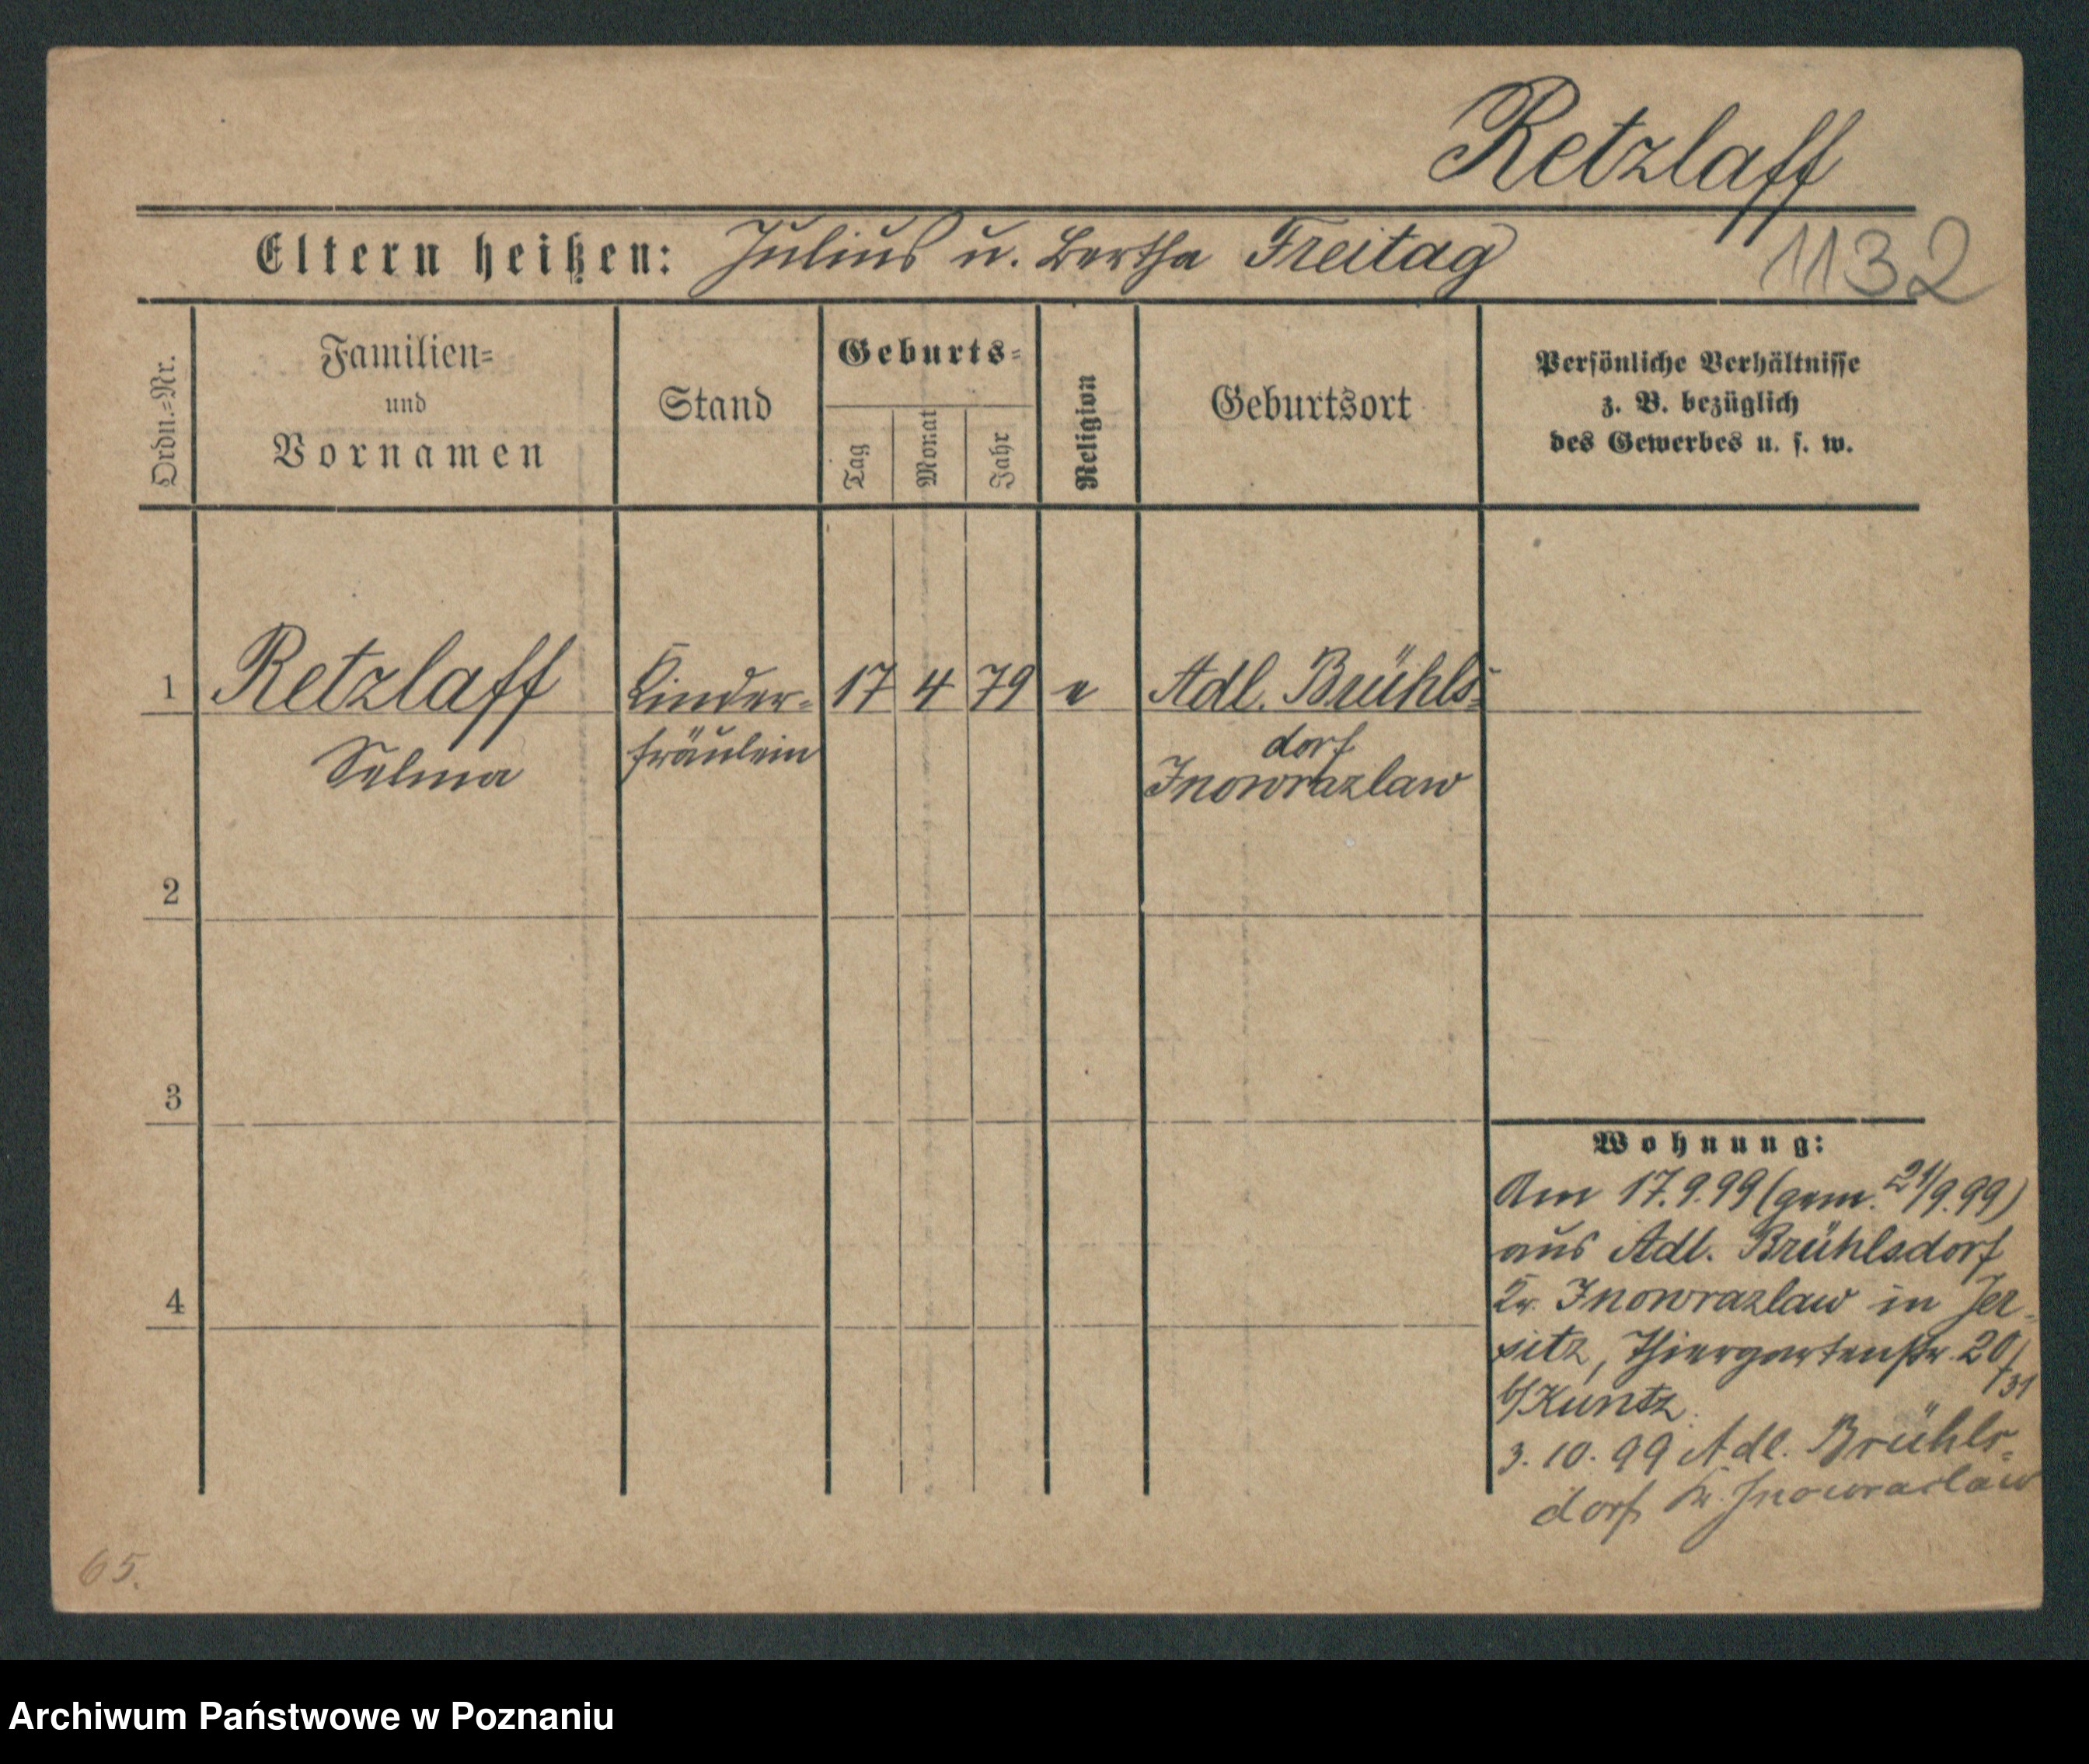 Retzlaff
Eltern heißen: Julius u. Bertha Freitag
1132
Ordn.=Nr.
Familien=
und
Vornamen
Stand
Geburts=
Tag
Monat
Jahr
Religion
Geburtsort
Persönliche Verhältnisse
z. B. bezüglich
des Gewerbes u. s. w.
1 Retzlaff Kinder= 17 4 79 e Adl. Brühls=
Selma fräulein dorf
Inowrazlaw
2
3
Wohnung:
Am 17.9.99 (gem. 21/9.99)
aus Adl. Brühlsdorf
4
Kr. Inowrazlaw in Jer=
sitz, Thiergartenstr. 20/31
b/Kuntz.
3. 10. 99 Adl. Brühls=
dorf Kr. Inowraclaw
65.
Archiwum Państwowe w Poznaniu